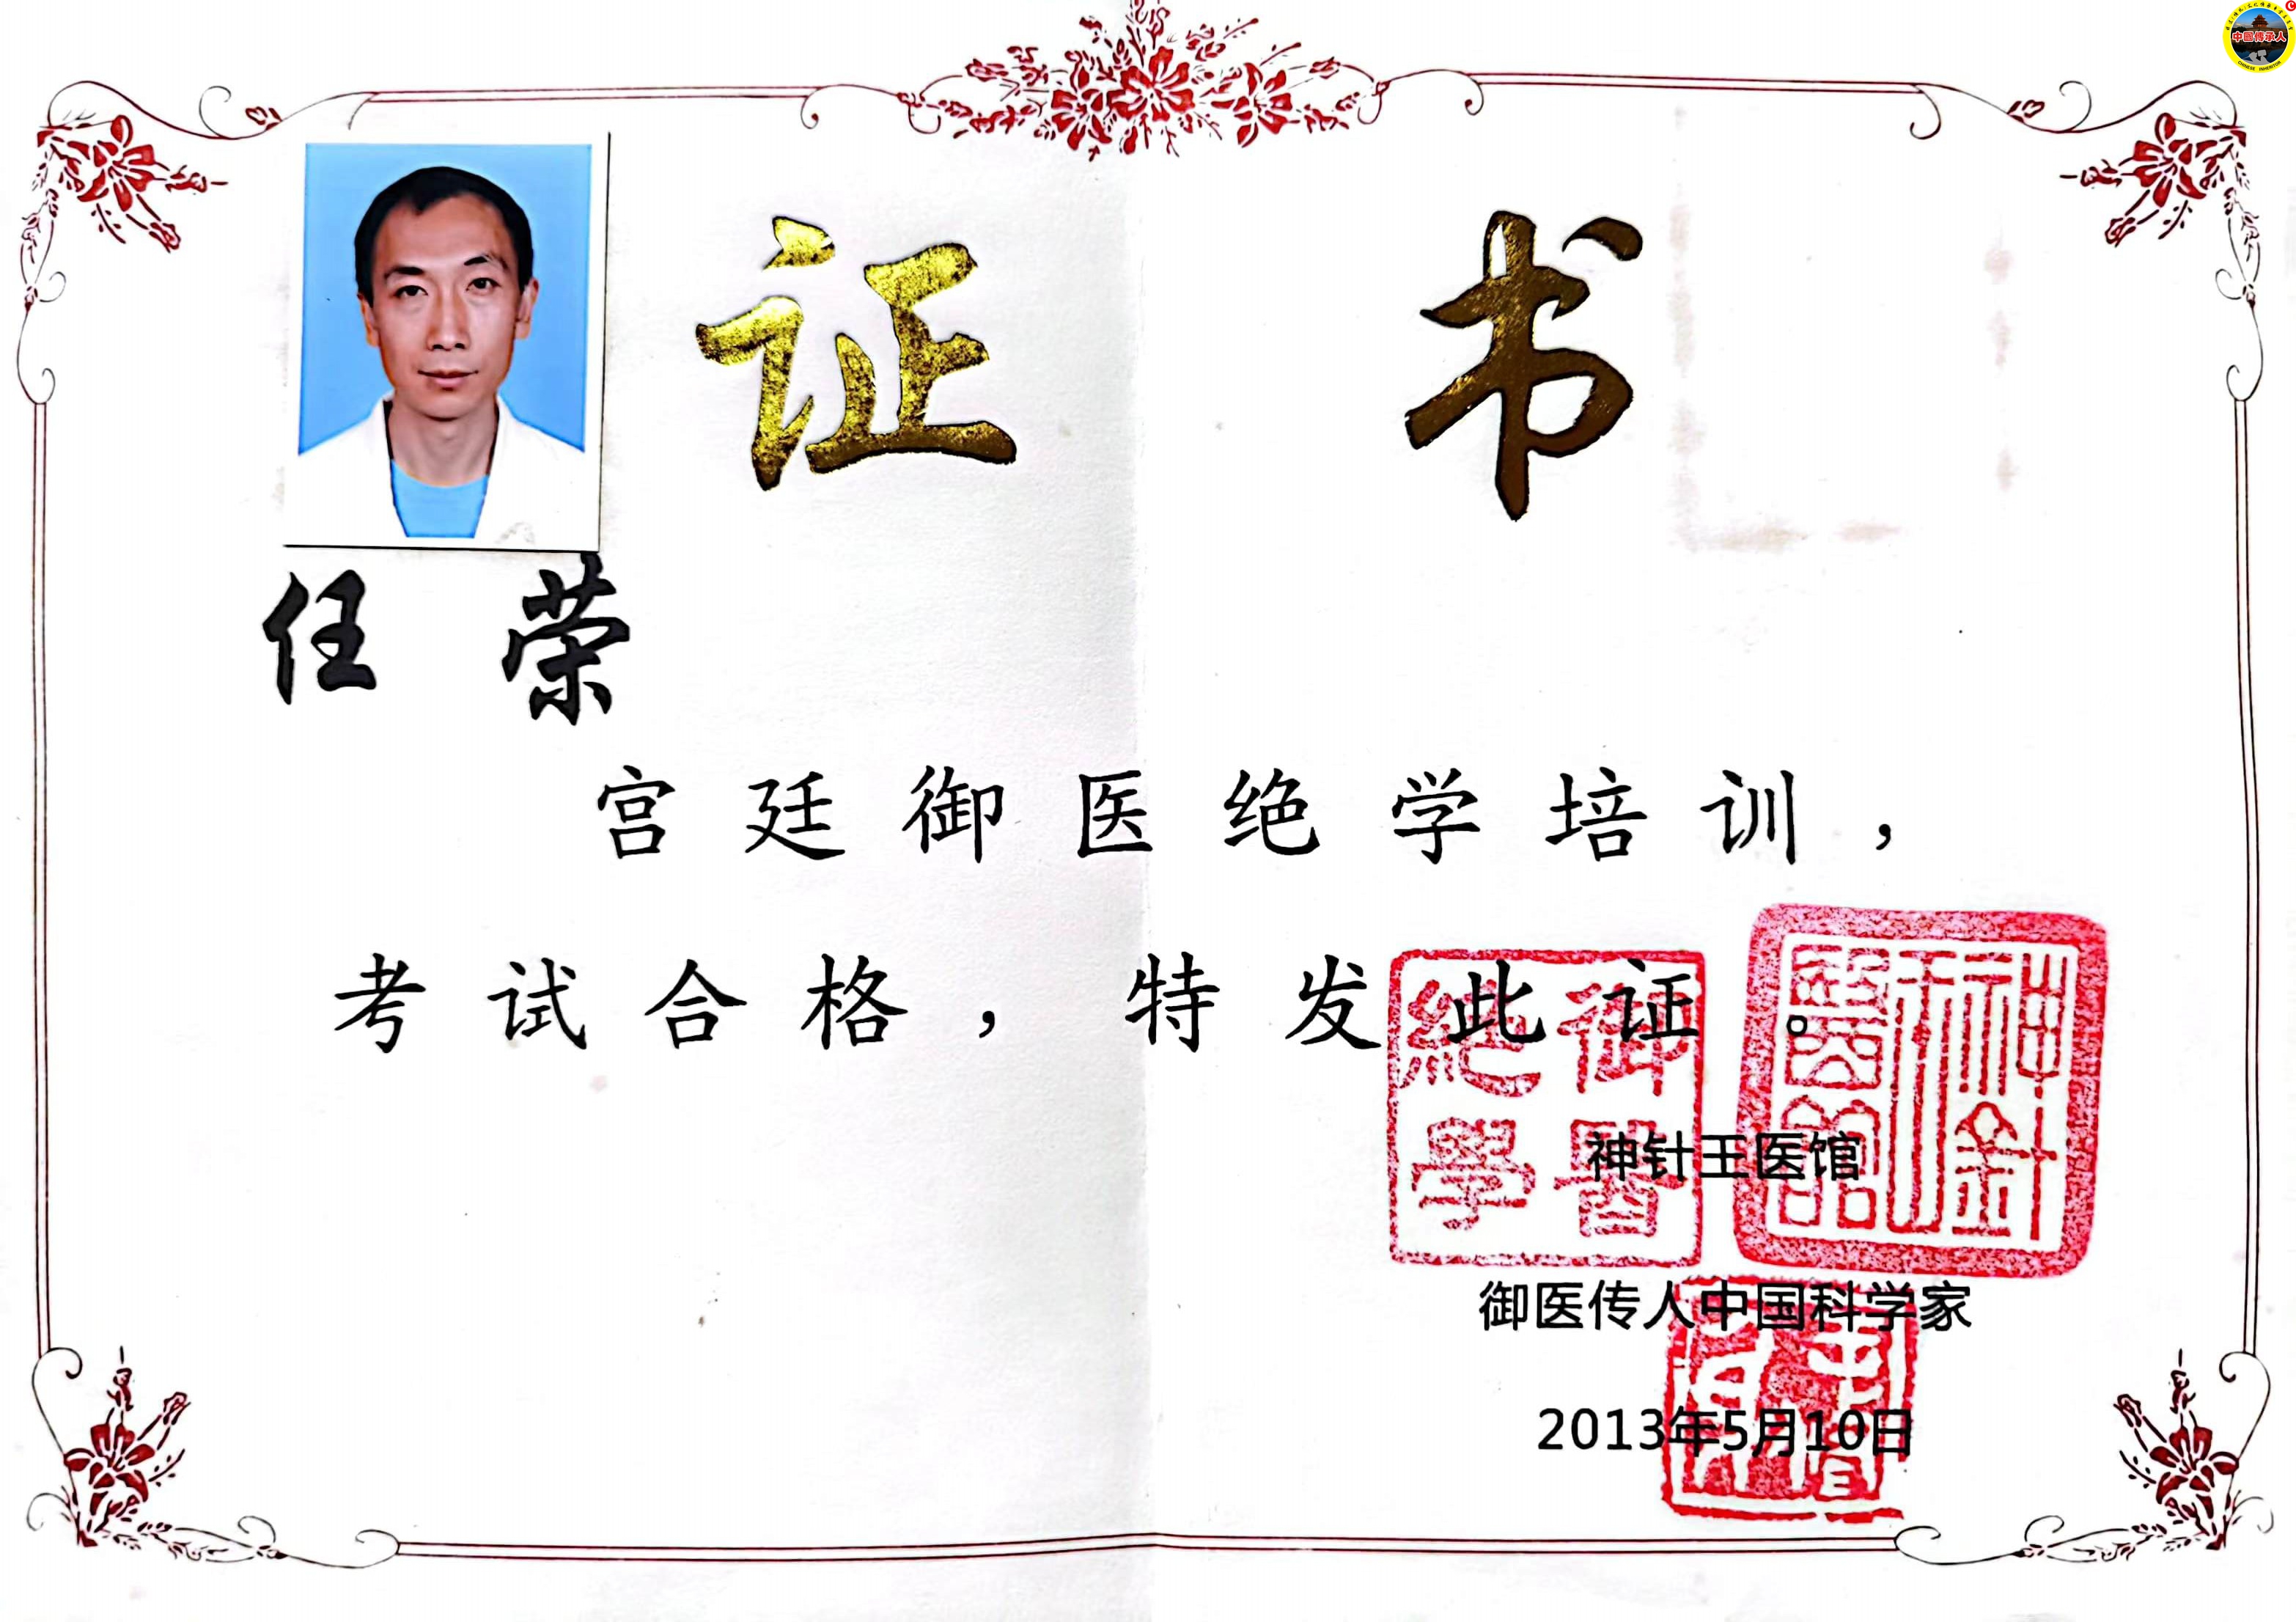 中國傳承人
CHINESE INHERITOR
证 书
任 荣
宫廷御医绝学培训，
考试合格，特发此证。
御醫
絕學
神針王
醫館
神针王医馆
御医传人中国科学家
2013年5月10日